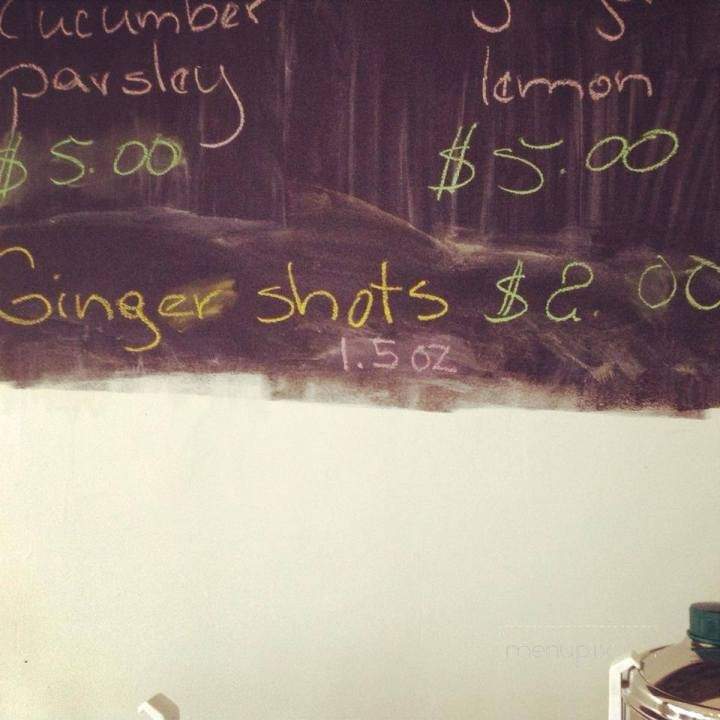 Cucumber
parsley
$5.00
lemon
$5.00
Ginger shots $2.00
1.5 oz
menupix